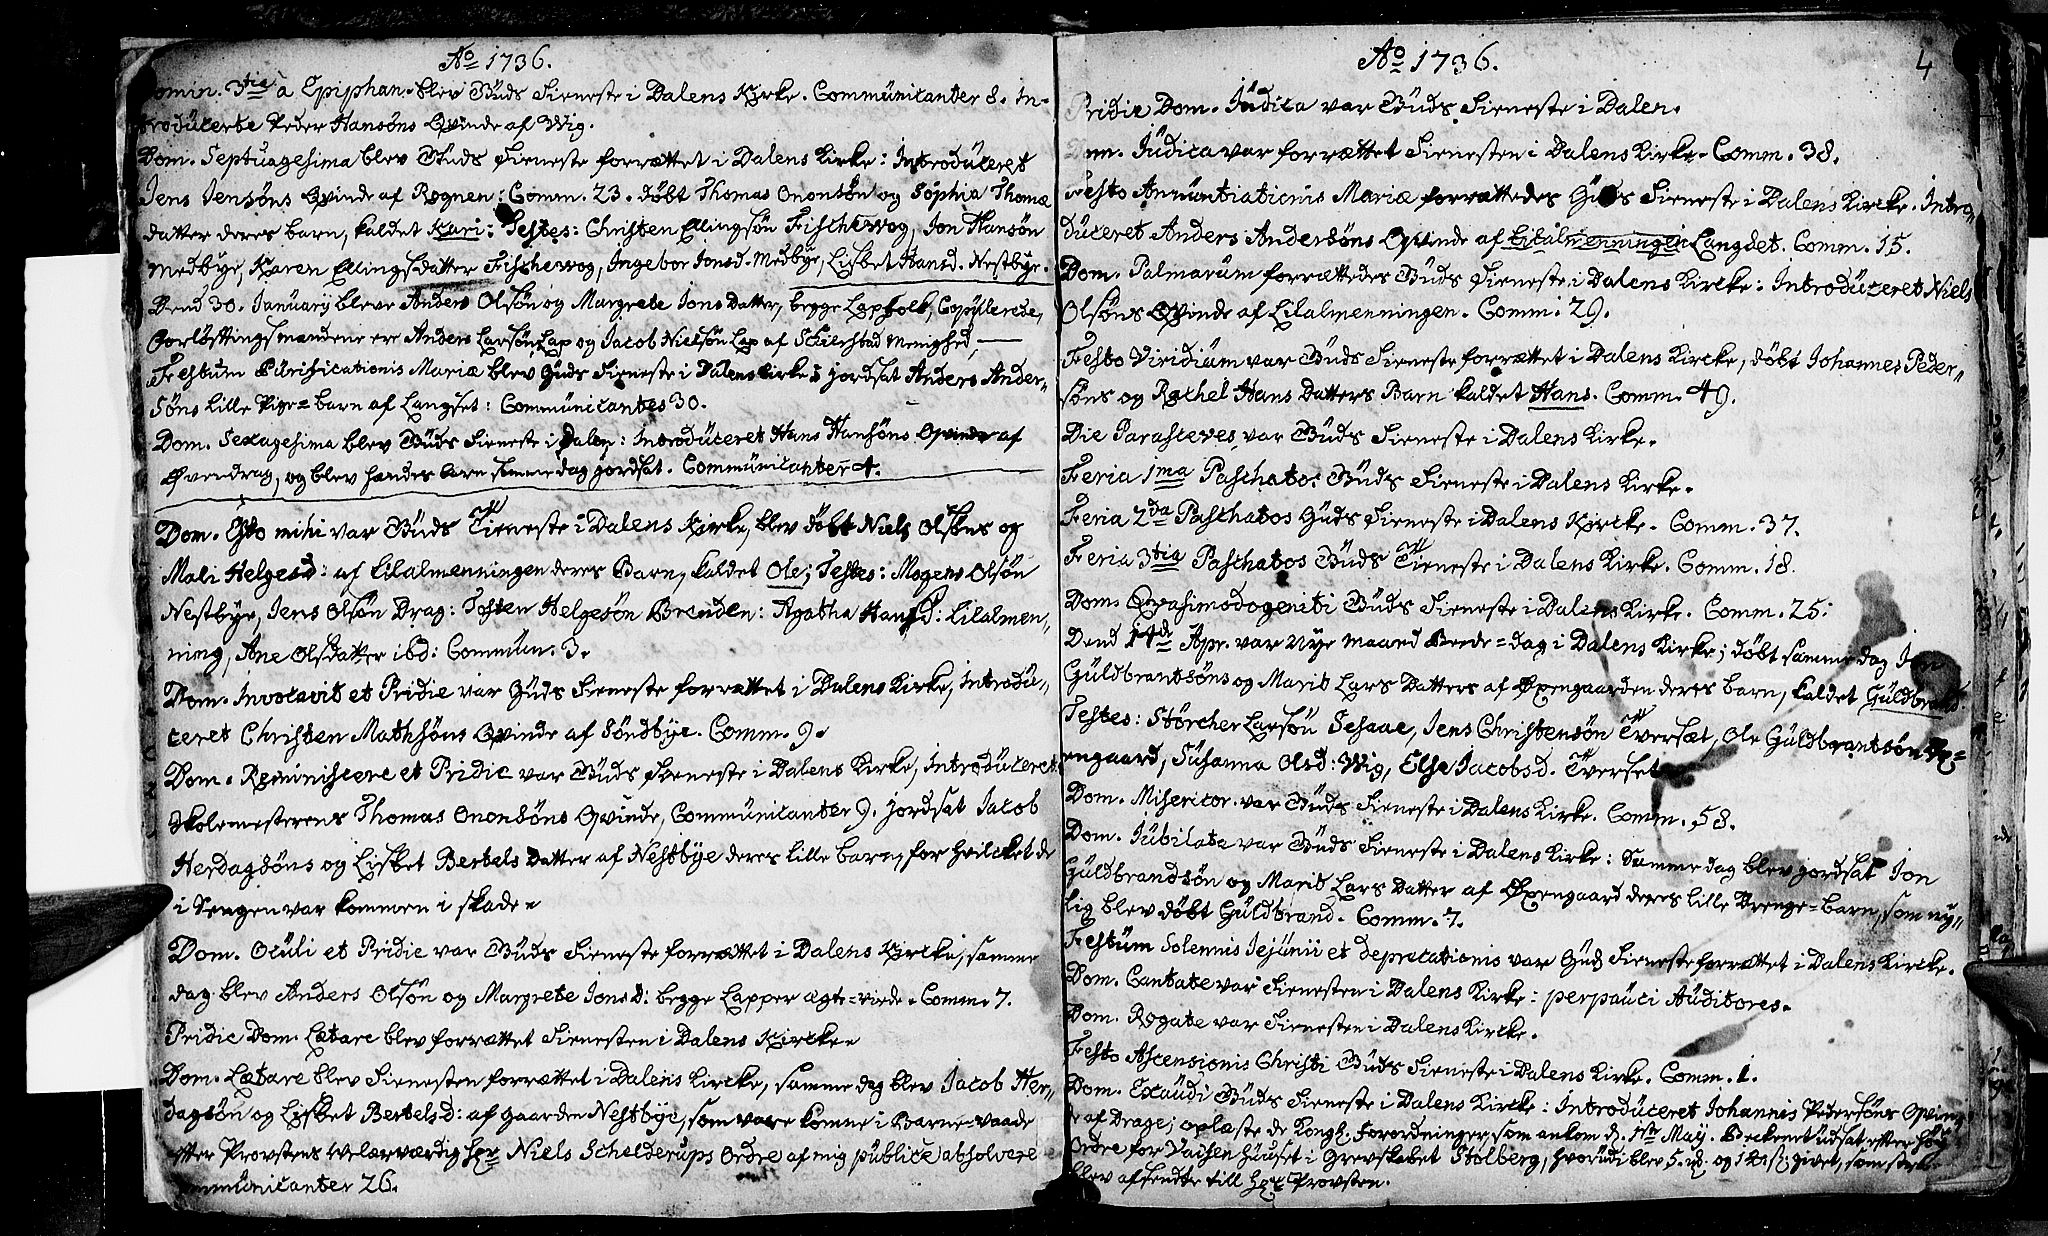 Ao 1736.
Domin. 3tia à Epiphan. blev Güds Tieneste i Dalens Kirke. Communicanter 8. In-
troducerte Peder Hansøns Qvinde af Wig.
Dom. Septuagesima blev Güds Tieneste forrættet i Dalens Kirke: Introdüceret
Jens Jensøns Qvinde af Rognen: Comm. 23. døbt Thomas Ononsøn og Sophia Thomæ
datter deres barn, kaldet Kari: Testes: Christen Ellingsøn Fischewog, Jon Hansøn
Medbye, Karen Ellingsdatter Fischewog, Ingebor Jonsd. Medbye, Lisbet Hansd. Nestbye.
Dend 30. Januarij bleve Anders Olsøn og Margrete Jons Datter, begge Lapfolk, Copulerede,
Forløftningsmændene ere Anders Larsøn Lap og Jacob Nielsøn Lap af Skierstad Menighed,
Festum Pürificationis Mariæ blev Güds Tieneste i Dalens Kirke; jordsat Anders Ander-
søns lille Pige-barn af Langset: Communicantes 30.
Dom. Sexagesima blev Güds Tieneste i Dalen: Introdüceret Hans Hansøns Qvinde af
Øvendrag, og blev handes barn samme dag jordsat. Commünicanter 4.
Dom. Esto mihi var Güds Tieneste i Dalens Kirke, blev døbt Niels Olsøns og
Mali Helgesd: af Lilalmenningen deres Barn, kaldet Ole; Testes: Mogens Olsøn
Nestbye, Jens Olsøn Drag: Tosten Helgesøn Breiden: Agatha Hansd: Lilalmen-
ning, Ane Olsdatter ibd: Commün. 3.
Dom. Invocavit et Pridie var Güds Tieneste forrættet i Dalens Kirke, Introdü-
ceret Christen Mathsøns Qvinde af Sündbye. Comm. 9.
Dom. Reminiscere et Pridie var Güds Tieneste i Dalens Kirke, Introdüceret
Skolemesterens Thomas Ononsøns Qvinde, Commünicanter 9. jordsat Jacob
Herdagsøns og Lisbet Bertels Datter af Nestbye deres lille barn, for hvilcket de
i Sengen var kommen i skade.
Dom. Oculi et Pridie var Güds Tieneste forrættet i Dalens Kircke, samme
dag blev Anders Olsøn og Margrete Jonsd: begge Lapper ægte-viede. Comm. 7.
Pridie Dom. Lætare blev forrættet Tienesten i Dalens Kircke.
Dom. Lætare blev Tienesten forrættet i Dalens Kircke, samme dag blev Jacob Her-
dagsøn og Lisbet Bertelsd: af gaarden Nestbye, som vare komne i Barne-vaade
efter Provstens Welærværdig her Niels Schelderups Ordre af mig publice absolvere
Communicanter 26.
Ao 1736. 4
Pridie Dom. Jüdica var Güds Tieneste i Dalen.
Dom. Jüdica var forrættet Tienesten i Dalens Kirke. Comm. 38.
Festo Annüntiationis Mariæ forrættedes Güds Tieneste i Dalens Kircke. Intro-
düceret Anders Andersøns Qvinde af Lilalmenningen Langset. Comm. 15.
Dom. Palmarüm forrættedes Güds Tieneste i Dalens Kircke: Introdüceret Niels
Olsøns Qvinde af Lilalmenningen. Comm: 29.
Festo Viridiüm var Güds Tieneste forrættet i Dalens Kircke, døbt Johannes Peder-
søns og Rachel Hans Datters Barn kaldet Hans. Comm. 49.
Die Parasceves var Güds Tieneste i Dalens Kirke.
Feria 1ma Paschatos Güds Tieneste i Dalens Kirke.
Feria 2da Paschatos Güds Tieneste i Dalens Kircke. Comm. 37.
Feria 3tia Paschatos Güds Tieneste i Dalens Kirke. Comm. 18.
Dom. Qvasimodogeniti Güds Tieneste i Dalens Kirke. Comm. 25:
Dend 14de Apr. var Nye Maaned Beede-dag i Dalens Kirke; døbt samme dag Jon
Güldbrantsøns og Marit Lars Datters af Øxengaarden deres barn, kaldet Güldbrand.
Testes: Störcher Larsøn Sesaae, Jens Christensøn Tverset, Ole Güldbrantsøn Øx-
engaard, Süsanna Olsd: Wig, Else Jacobsd. Tverset.
Dom. Misericor. var Güds Tieneste i Dalens Kirke. Comm. 58.
Dom. Jübilate var Güds Tieneste i Dalens Kirke: Samme dag blev jordsat Jon
Güldbrandsøn og Marit Lars Datter af Øxengaard deres lille Drenge-barn, som ny-
lig blev døbt Güldbrand. Comm. 7.
Festüm Solennis Jejünii et deprecationis var Güds Tieneste forrættet i Dalens Kircke.
Dom. Cantate var Tienesten i Dalens Kirke: perpaüci Aüditores.
Dom. Rogate var Tienesten i Dalens Kircke.
Festo Ascensionis Christi Güds Tieneste i Dalens Kirke. Comm. 1.
Dom. Exaüdi Güds Tieneste i Dalens Kircke: Introdüceret Johannis Pedersøns Qvin-
de af Drage; oplæste de Kongl. Forordninger, som ankom d. 1ste May. Bekenet udsat efter høy
Ordre for Vaisen Hüüset i Grevskabet Stolberg, hvorüdi blev givet, som straks
blev affendte till her Provsten.